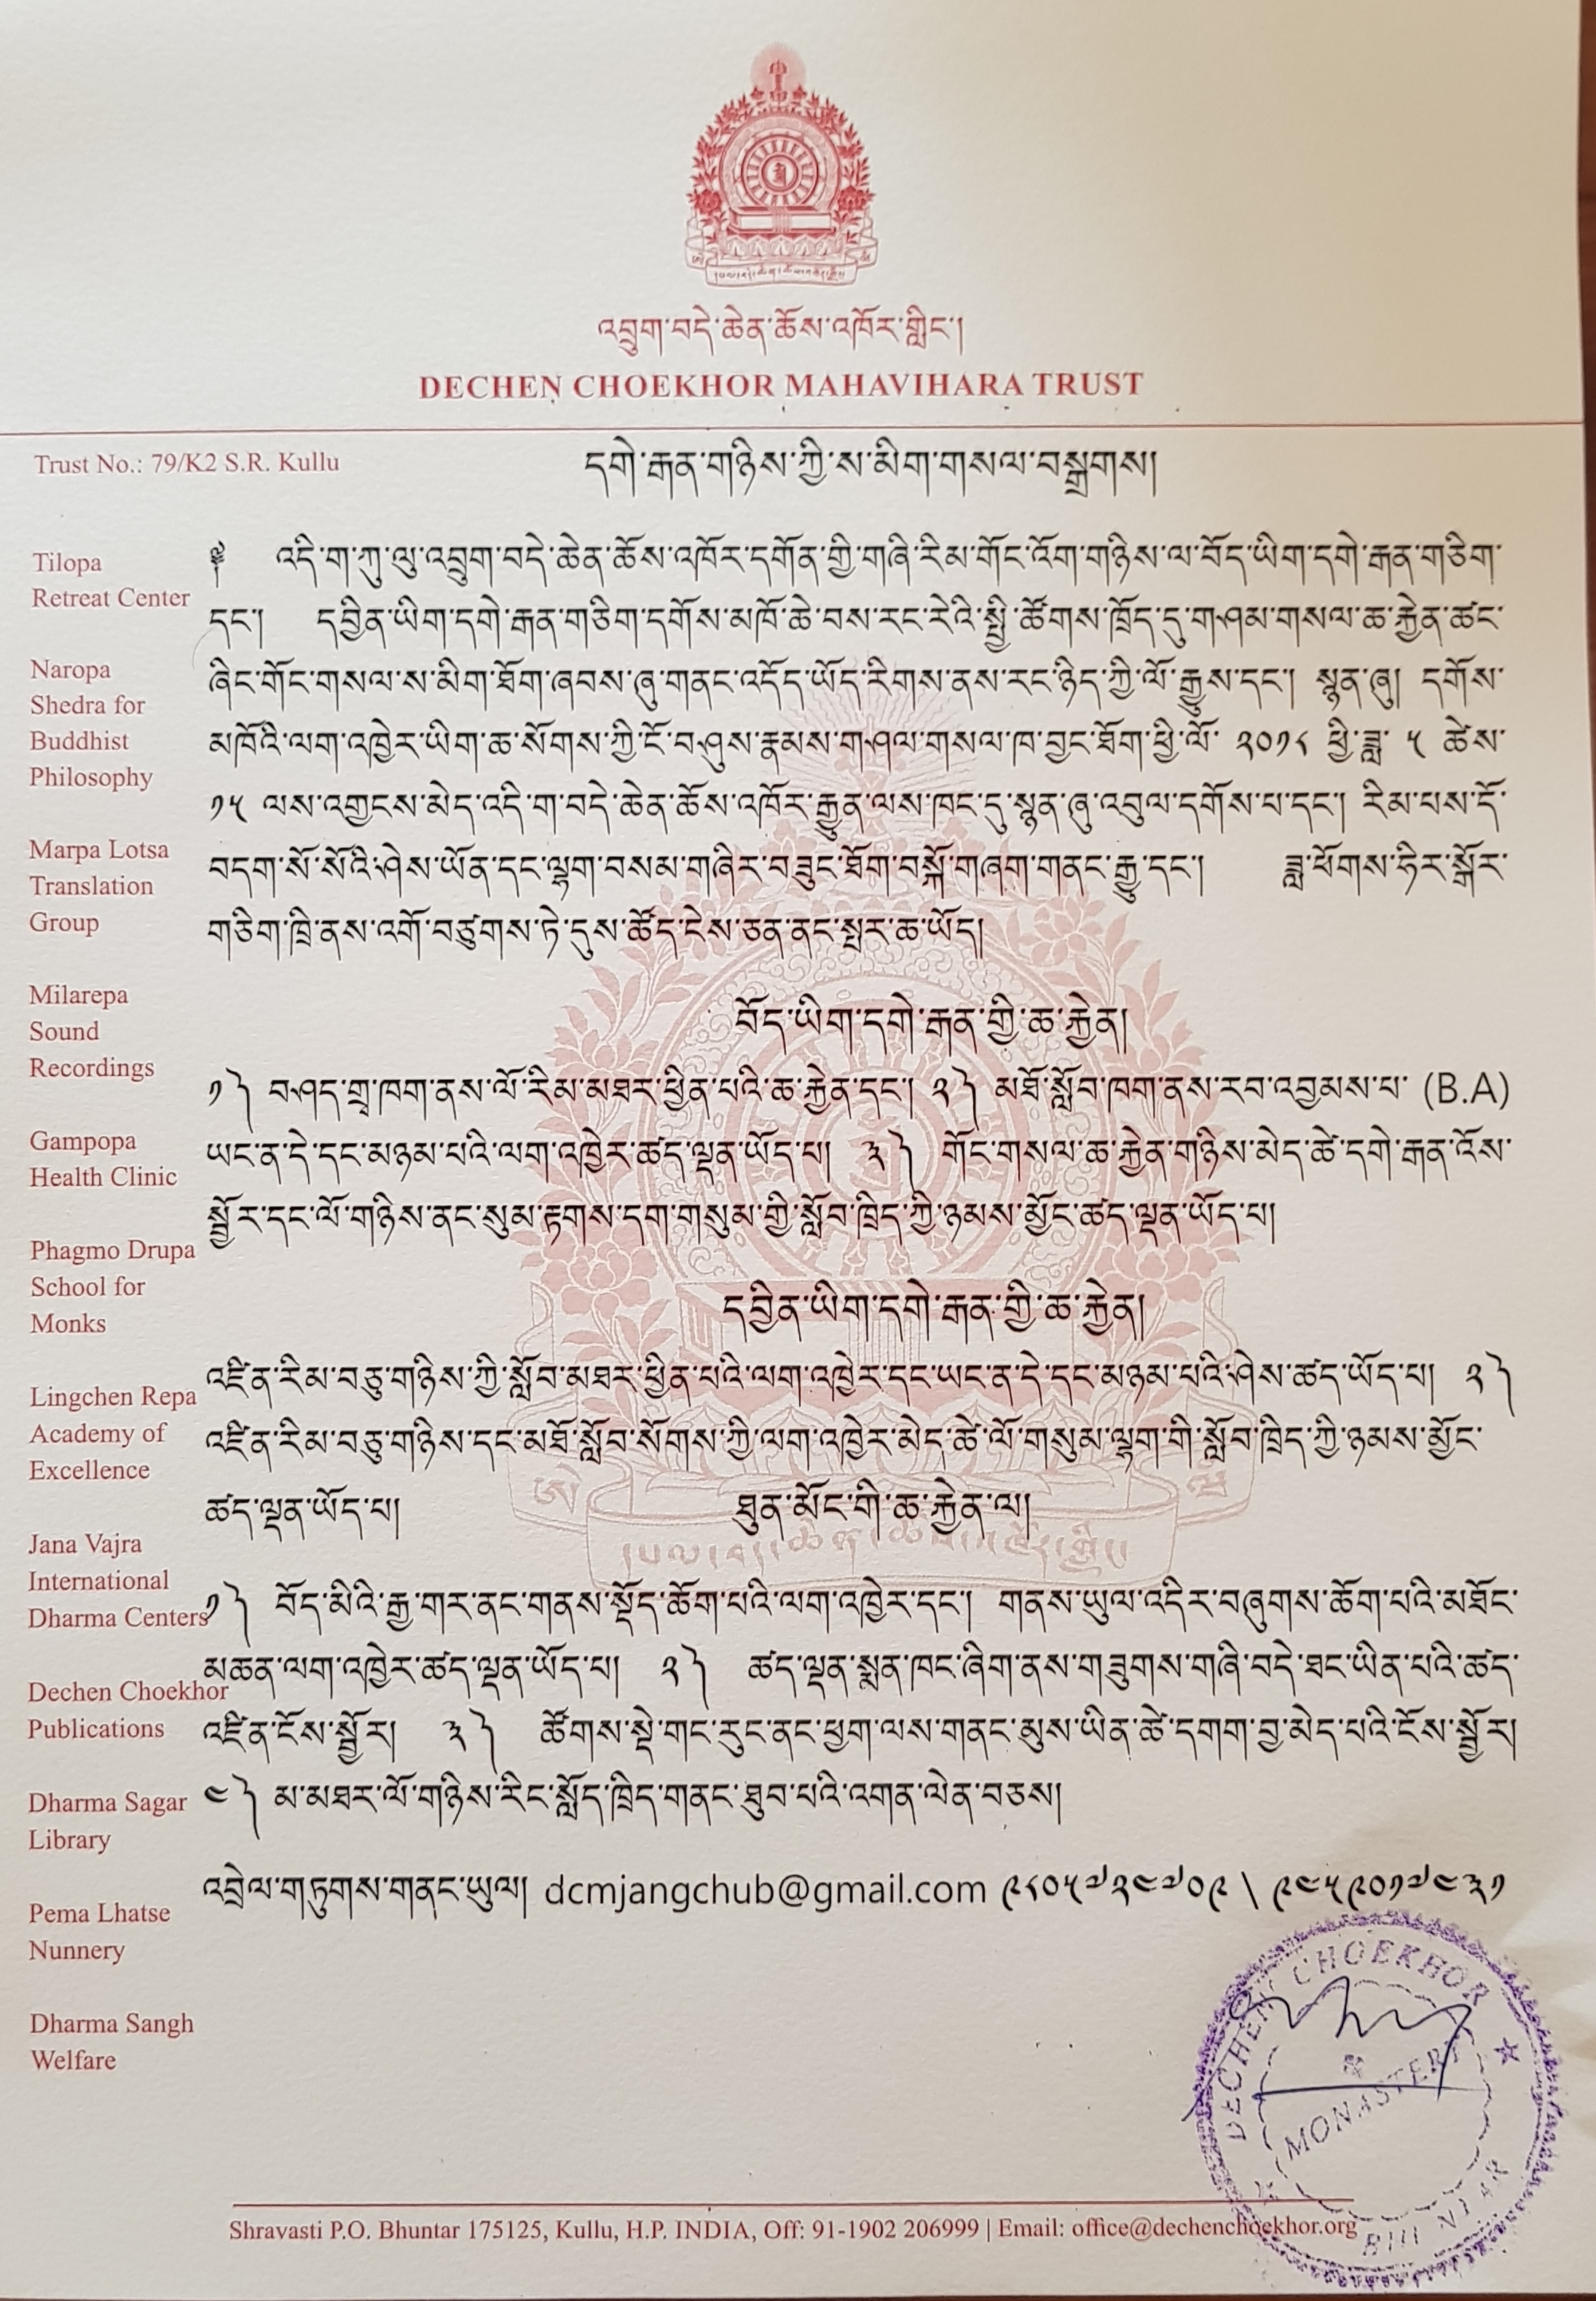 འབྲུག་བདེ་ཆེན་ཆོས་འཁོར་གླིང་།
DECHEN CHOEKHOR MAHAVIHARA TRUST
Trust No.: 79/K2 S.R. Kullu
དགེ་རྒན་གཉིས་ཀྱི་ས་མིག་གསལ་བསྒྲགས།
༄༅ འདི་ག་ཀུ་ལུ་འབྲུག་བདེ་ཆེན་ཆོས་འཁོར་དགོན་གྱི་གཞི་རིམ་གོང་འོག་གཉིས་ལ་བོད་ཡིག་དགེ་རྒན་གཅིག་
དང་། དབྱིན་ཡིག་དགེ་རྒན་གཅིག་དགོས་མཁོ་ཆེ་བས་རང་རེའི་སྤྱི་ཚོགས་ཁྲོད་དུ་གཤམ་གསལ་ཆ་རྐྱེན་ཚང་
ཞིང་གོང་གསལ་ས་མིག་ཐོག་ཞབས་ཞུ་གནང་འདོད་ཡོད་རིགས་ནས་རང་ཉིད་ཀྱི་ལོ་རྒྱུས་དང་། སྙན་ཞུ། དགོས་
མཁོའི་ལག་འཁྱེར་ཡིག་ཆ་སོགས་ཀྱི་ངོ་བཤུས་རྣམས་གཤལ་གསལ་ཁ་བྱང་ཐོག་ཕྱི་ལོ་ ༢༠༡༨ ཕྱི་ཟླ་ ༥ ཚེས་
༡༥ ལས་འགྱངས་མེད་འདི་ག་བདེ་ཆེན་ཆོས་འཁོར་རྒྱུན་ལས་ཁང་དུ་སྙན་ཞུ་འབུལ་དགོས་པ་དང་། རིམ་པས་དོ་
བདག་སོ་སོའི་ཤེས་ཡོན་དང་ལྷག་བསམ་གཞིར་བཟུང་ཐོག་བསྐོ་གཞག་གནང་རྒྱུ་དང་། ཟླ་ཕོགས་ཧིར་སྒོར་
གཅིག་ཁྲི་ནས་འགོ་བཙུགས་ཏེ་དུས་ཚོད་ངེས་ཅན་ནང་སྤར་ཆ་ཡོད།
བོད་ཡིག་དགེ་རྒན་གྱི་ཆ་རྐྱེན།
༡༽ བཤད་གྲྭ་ཁག་ནས་ལོ་རིམ་མཐར་ཕྱིན་པའི་ཆ་རྐྱེན་དང་། ༢༽ མཐོ་སློབ་ཁག་ནས་རབ་འབྱམས་པ་ (B.A)
ཡང་ན་དེ་དང་མཉམ་པའི་ལག་འཁྱེར་ཚད་ལྡན་ཡོད་པ། ༣༽ གོང་གསལ་ཆ་རྐྱེན་གཉིས་མེད་ཚེ་དགེ་རྒན་འོས་
སྦྱོར་དང་ལོ་གཉིས་ནང་སུམ་རྟགས་དག་གསུམ་གྱི་སློབ་ཁྲིད་ཀྱི་ཉམས་མྱོང་ཚད་ལྡན་ཡོད་པ།
དབྱིན་ཡིག་དགེ་རྒན་གྱི་ཆ་རྐྱེན།
འཛིན་རིམ་བཅུ་གཉིས་ཀྱི་སློབ་མཐར་ཕྱིན་པའི་ལག་འཁྱེར་དང་ཡང་ན་དེ་དང་མཉམ་པའི་ཤེས་ཚད་ཡོད་པ། ༢༽
འཛིན་རིམ་བཅུ་གཉིས་དང་མཐོ་སློབ་སོགས་ཀྱི་ལག་འཁྱེར་མེད་ཚེ་ལོ་གསུམ་ལྷག་གི་སློབ་ཁྲིད་ཀྱི་ཉམས་མྱོང་
ཚད་ལྡན་ཡོད་པ། ཐུན་མོང་གི་ཆ་རྐྱེན་ལ།
༡༽ བོད་མིའི་རྒྱ་གར་ནང་གནས་སྡོད་ཆོག་པའི་ལག་འཁྱེར་དང་། གནས་ཡུལ་འདིར་བཞུགས་ཆོག་པའི་མཐོང་
མཆན་ལག་འཁྱེར་ཚད་ལྡན་ཡོད་པ། ༢༽ ཚད་ལྡན་སྨན་ཁང་ཞིག་ནས་གཟུགས་གཞི་བདེ་ཐང་ཡིན་པའི་ཚད་
འཛིན་ངོས་སྦྱོར། ༣༽ ཚོགས་སྡེ་གང་རུང་ནང་ཕྱག་ལས་གནང་མུས་ཡིན་ཚེ་དགག་བྱ་མེད་པའི་ངོས་སྦྱོར།
༤༽ མ་མཐར་ལོ་གཉིས་རིང་སློད་ཁྲིད་གནང་ཐུབ་པའི་འགན་ལེན་བཅས།
འབྲེལ་གཏུགས་གནང་ཡུལ། dcmjangchub@gmail.com ༩༨༠༥༧༢༤༧༠༩ \ ༩༤༥༩༠༡༧༤༣༡
Tilopa
Retreat Center
Naropa
Shedra for
Buddhist
Philosophy
Marpa Lotsa
Translation
Group
Milarepa
Sound
Recordings
Gampopa
Health Clinic
Phagmo Drupa
School for
Monks
Lingchen Repa
Academy of
Excellence
Jana Vajra
International
Dharma Centers
Dechen Choekhor
Publications
Dharma Sagar
Library
Pema Lhatse
Nunnery
Dharma Sangh
Welfare
DECHEN CHOEKHOR
MONASTERY
Shravasti P.O. Bhuntar 175125, Kullu, H.P. INDIA, Off: 91-1902 206999 | Email: office@dechenchoekhor.org